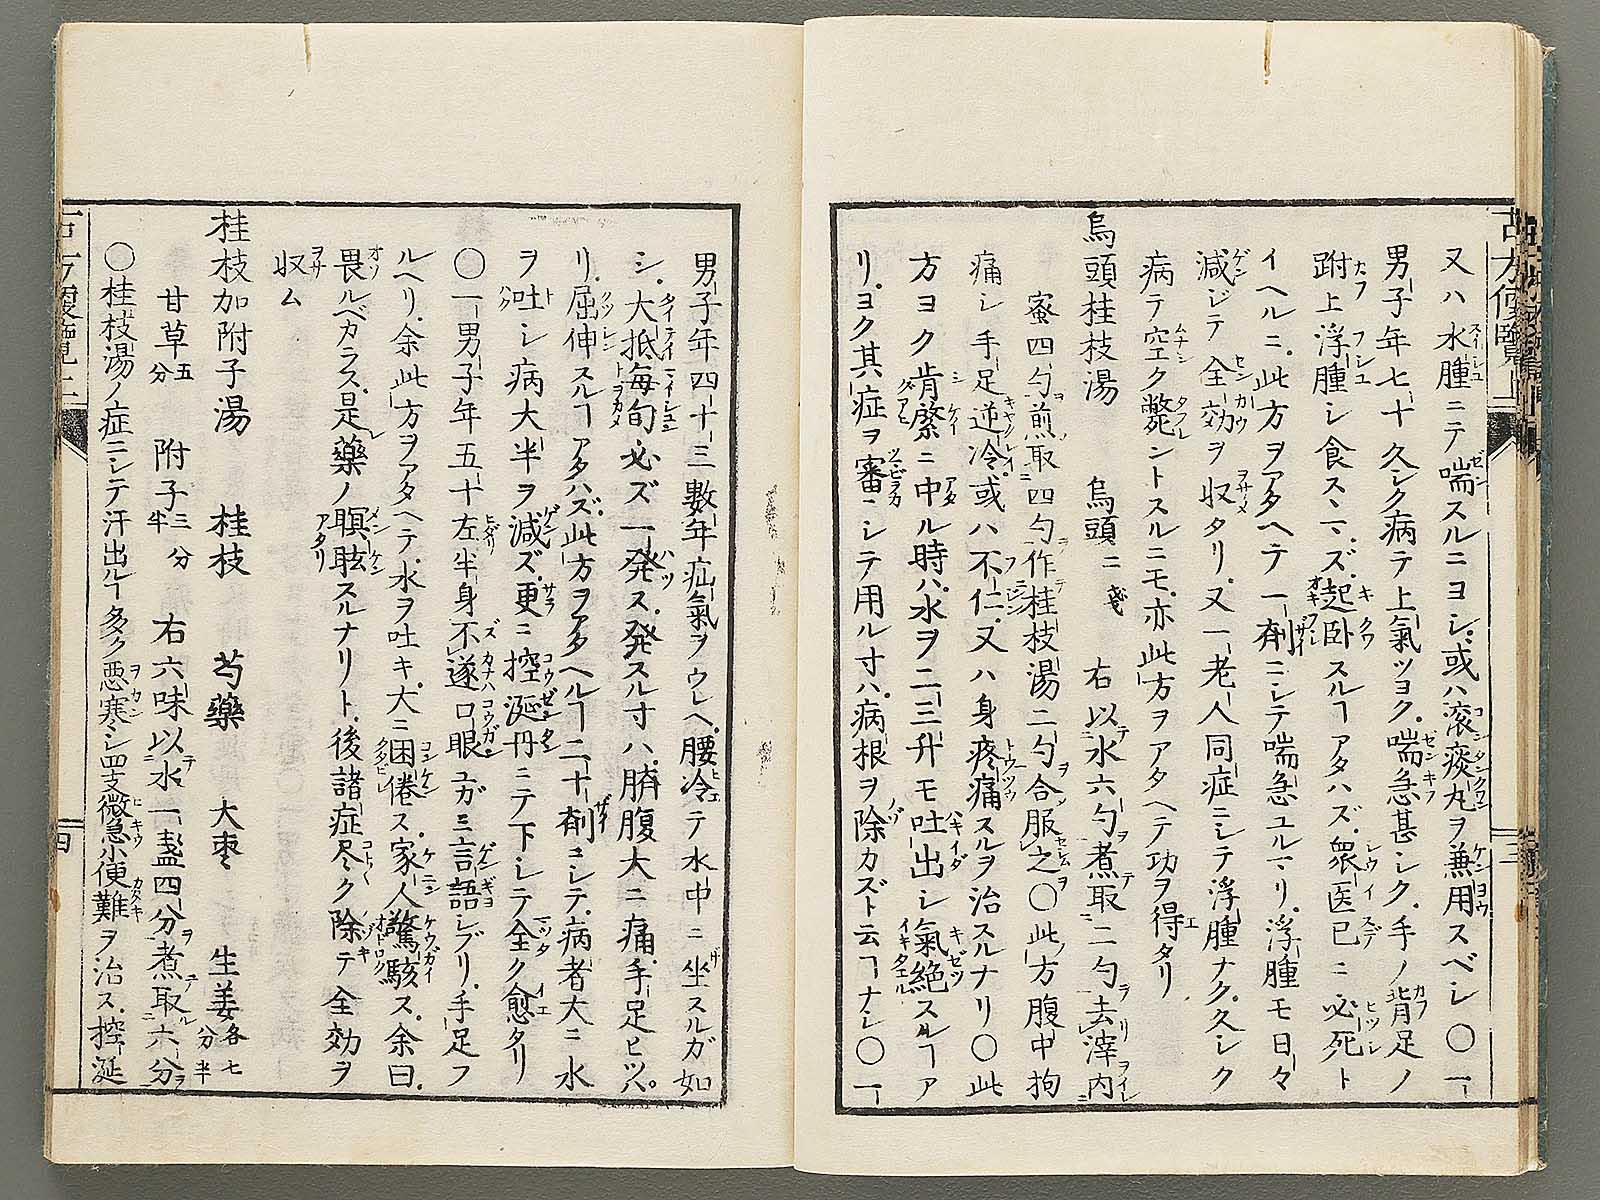 又ハ水腫ニテ喘スルニヨシ。或ハ滾痰丸ヲ兼用スベシ〇一
男子年七十久シク病テ上氣ツヨク。喘急甚シク。手ノ背足ノ
跗上浮腫シ食スヽマズ。起卧スルヿアタハズ。衆医已ニ必死ト
イヘルニ。此方ヲアタヘテ一劑ニシテ喘急ユルマリ。浮腫モ日々
減ジテ全効ヲ収タリ。又一老人同症ニシテ浮腫ナク。久シク
病テ空ク斃ントスルニモ。亦此方ヲアタヘテ功ヲ得タリ
烏頭桂枝湯 烏頭二戔 右以水六勺煮取二勺去滓内
蜜四勺煎取四勺作桂枝湯二勺合服之〇此方腹中拘
痛シ手足逆冷。或ハ不仁。又ハ身疼痛スルヲ治スルナリ〇此
方ヨク肯綮ニ中ル時ハ。水ヲ二三升モ吐出シ氣絶スルヿア
リ。ヨク其症ヲ審ニシテ用ル寸ハ。病根ヲ除カズト云ヿナシ〇一
古方便覽上
三
男子年四十三數年疝氣ヲウレヘ。腰冷テ水中ニ坐スルガ如
シ。大抵毎旬必ズ一発ス。発スル寸ハ。臍腹大ニ痛。手足ヒツハ
リ。屈伸スルヿアタハズ。此方ヲアタヘルヿ二十劑ニシテ。病者大ニ水
ヲ吐シ病大半ヲ減ズ。更ニ控涎丹ニテ下シテ全ク愈タリ
〇一男子年五十左半身不遂口眼ユガミ言語シブリ。手足フ
ルヘリ。余此方ヲアタヘテ。水ヲ吐キ。大ニ困倦ス。家人驚駭ス。余曰。
畏ルベカラス。是藥ノ瞑眩スルナリト。後諸症尽ク除テ全効ヲ
収ム
桂枝加附子湯 桂枝 芍藥 大棗 生姜各七分半
甘草五分 附子三分半 右六味以水一盞四分煮取六分
〇桂枝湯ノ症ニシテ汗出ルヿ多ク悪寒シ四支微急小便難ヲ治ス。控涎
古方便覽上
四